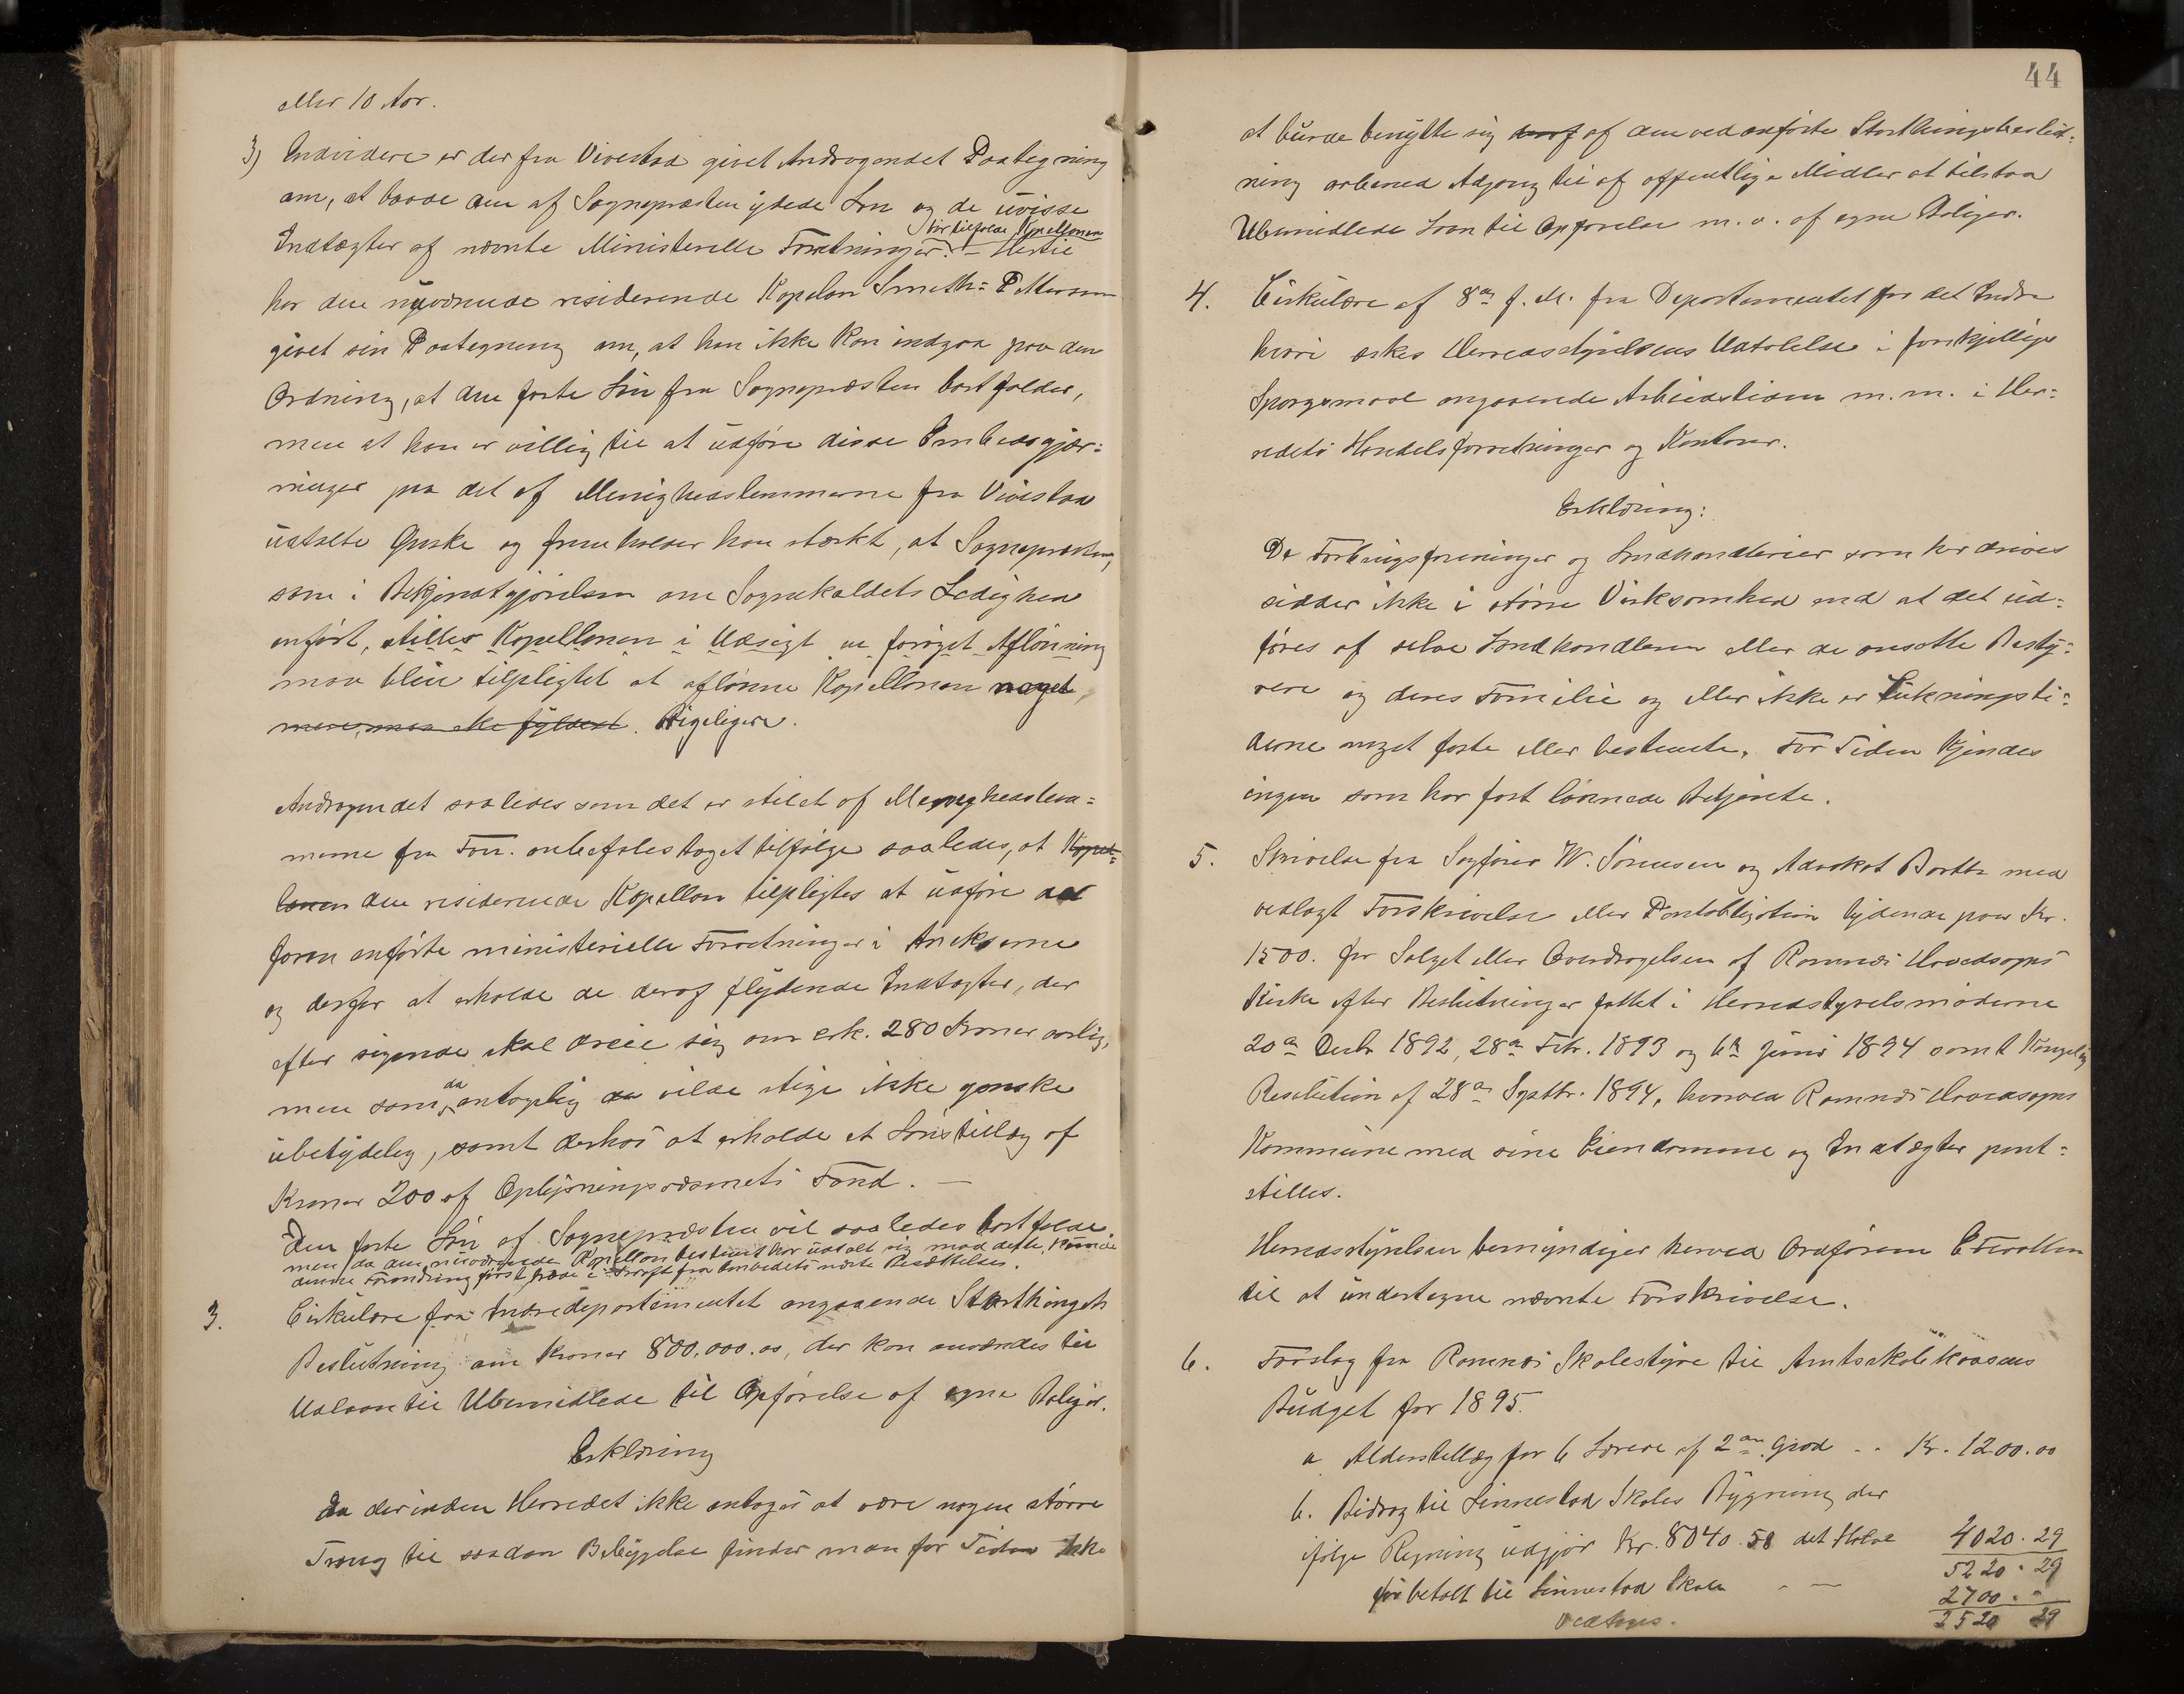 eller 10 Aar.
3) Endvidere er der fra Vivestad givet Andragendet Paategning
om, at baade den af Sognepræsten ydede Løn og de uvisse
bør tilfalde Kapellanen
Indtægter af nævnte Ministerielle Forretninger. – Hertil
har den nuværende residerende Kapelan Smith=Pettersen
givet sin Paategning om, at han ikke kan indgaa paa den
Ordning, at den faste Løn fra Sognepræsten bortfalder,
men at han er villig til at udføre disse Embedsgjær=
ninger paa det af Menighedslemmerne fra Vivestad
udtalte Ønske og fremholder han stærkt, at Sognepræsten,
som i Bekjendtgjørelsen om Sognekaldets Ledighed
anført, stilles Kapellanen i Udsigt en forøget Aflønning
maa blive tilpligtet at aflønne Kapellanen noget
mere, maa ske fyldest. Rigeligere.
Andragendet saaledes som det er stilet af Menighedslem=
merne fra Fon. anbefales taget tilfølge saaledes, at Kapel=
lanen den residerende Kapellan tilpligtes at udføre de
foran anførte ministerielle Forretninger i Anekserne
og derfor at erholde de deraf flydende Indtægter, der
efter sigende skal dreie sig om cirk. 280 Kroner aarlig,
da
men som antagelig da vilde stige ikke ganske
ubetydelig, samt derhos at erholde et Lønstillæg af
Kroner 200 af Oplysningsvæsenets Fond. –
Den faste Løn af Sognepræsten vil saaledes bortfalde
men da den nuværende Kapellan bestemt har udtalt sig mod dette,
denne Forandring først træde i Kraft fra Embedets næste Besættelse.
3. Cirkulære fra Indredepartementet angaaende Storthingets
Beslutning om Kroner 800,000.00, der kan anvendes til
Udlaan til Ubemidlede til Opførelse af egne Boliger.
Erklæring
Da der inden Herredet ikke antages at være nogen større
Trang til saadan Bebyggelse finder man for Tiden ikke
44
at burde benytte sig deraf af den ved anførte Storthingsbeslut=
ning aabnede Adgang til af offentlige Midler at tilstaa
Ubemidlede Laan til Opførelse m.v. af egne Boliger.
4. Cirkulære af 8de f. M. fra Departementet for det Indre
hvori æskes Herredsstyrelsens Udtalelse i forskjellige
Spørgsmaal angaaende Arbeidstiden m.m. i Her=
redets Handelsforretninger og Kontorer.
Erklæring:
De Forbrugsforeninger og Landhandlerier som her drives
sidder ikke i større Virksomhed end at det ud=
føres af selve Landhandleren eller de ansatte Besty=
rere og deres Familie og eller ikke er Lukningsti=
derne noget faste eller bestemte. For Tiden kjendes
ingen som har fast lønnede Betjente.
5. Skrivelse fra Sagfører W. Sørensen og Advokat Barth med
vedlagt Forskrivelse eller Pantobligation lydende paa Kr.
1500. for Salget eller Overdragelsen af Ramnæs Hovedsogns
Kirke efter Beslutninger fattet i Herredsstyrelsmøderne
20de Decbr 1892, 28de Febr. 1893 og 6te Juni 1894 samt Kongelig
Resolution af 28de Septbr. 1894, hvorved Ramnæs Hovedsogns
Kommune med sine Eiendomme og Indtægter pant=
stilles.
Herredsstyrelsen bemyndiger herved Ordføreren
til at undertegne nævnte Forskrivelse.
6. Forslag fra Ramnæs Skolestyre til Amtsskolekassens
Budget for 1895.
a Alderstillæg for 6 Lærere af 2den Grad - - Kr. 1200.00
b. Bidrag til Linnestad Skoles Bygning der
ifølge Regning udgjør Kr. 8040.58 det Halve 4020.29
5220.29
før betalt til Linnestad Skole - — 2700. "
Vedtages. 2520 29